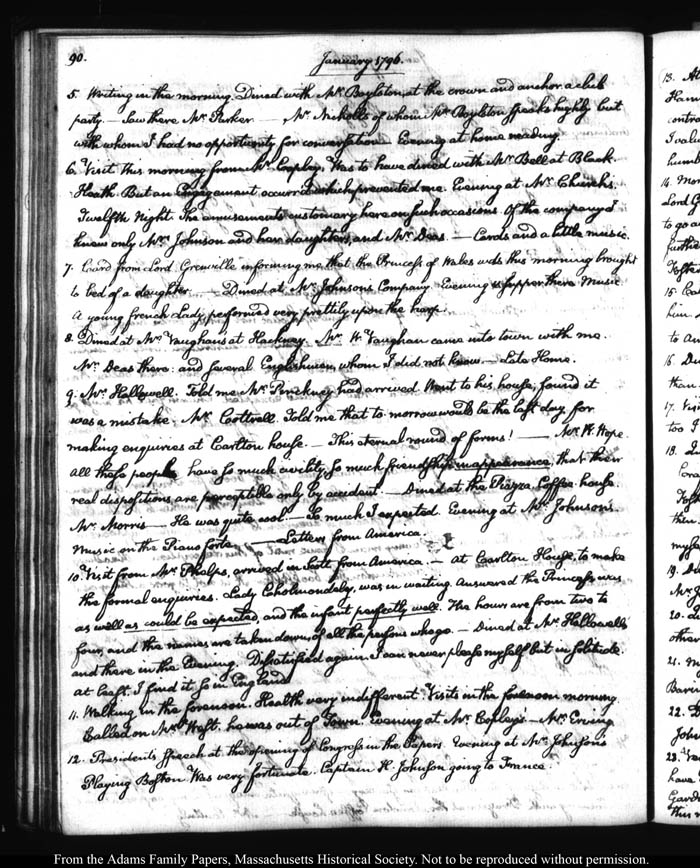 90.
January 1796.
5. Writing in the morning. Dined with Mr. Boylston, at the crown and anchor, a club
party.— Saw there Mr. Parker —— Mr. Nicholls of whom Mr. Boylston speaks highly but
with whom I had no opportunity for conversation— Evening at home reading.
6. Visit this morning from Mr. Copley. Was to have dined with Mr. Bell at Black-
Heath. But an engagement occurred which prevented me. Evening at Mr. Church's.
Twelfth Night. The amusements customary here on such occasions. Of the company I
knew only Mrs. Johnson and her daughters, and Mr. Deas. — Cards and a little music.
7. Card from Lord Grenville informing me that the Princess of Wales was this morning brought
to bed of a daughter —— Dined at Mr. Johnson's. Company. Evening & supper there. Music
A young french Lady performed very prettily upon the harp.
8. Dined at Mr. Vaughan's at Hackney. Mr. W. Vaughan came into town with me.
Mr. Deas there: and several Englishmen, whom I did not know.— Late Home.
9. Mr. Hallowell. Told me Mr. Pinckney had arrived. Went to his house, found it
was a mistake. Mr. Cottrell. Told me that to-morrow would be the last day, for
making enquiries at Carlton house.— This eternal round of forms! —— Mr. W. Hope.
All these people have so much civility, so much friendship in appearance, that their
real dispositions are perceptible only by accident.— Dined at the Piazza Coffee-house.
Mr. Morris— He was quite cool— So much I expected. Evening at Mr. Johnson's.
Music on the Piano forte. —— Letters from America.
10. Visit from Mr. Phelps, arrived in Scott from America— At Carlton House, to make
the formal enquiries. Lady Cholmondeley, was in waiting. Answered the Princess, was
as well as could be expected, and the infant perfectly well. The hours are from two to
four, and the names are taken down, of all the persons who go.— Dined at Mr. Hallowell's
and there in the Evening. Dissatisfied again. I can never please myself but in solitude.
at least I find it so in England.
11. Walking in the forenoon. Health very indifferent. Visits in the forenoon morning
Called on Mr. West. he was out of Town. Evening at Mr. Copley's— Mr. Erving.
12. President's speech at the opening of Congress in the Papers. Evening at Mr. Johnson's
Playing Boston. Was very fortunate. Captain H. Johnson going to France.
13.
14. Mor
Lord G
to go a
15.
him
to
16.
than
17. Visi
too
18.
19.
20.
other
21.
22.
John
23.
have
From the Adams Family Papers, Massachusetts Historical Society. Not to be reproduced without permission.